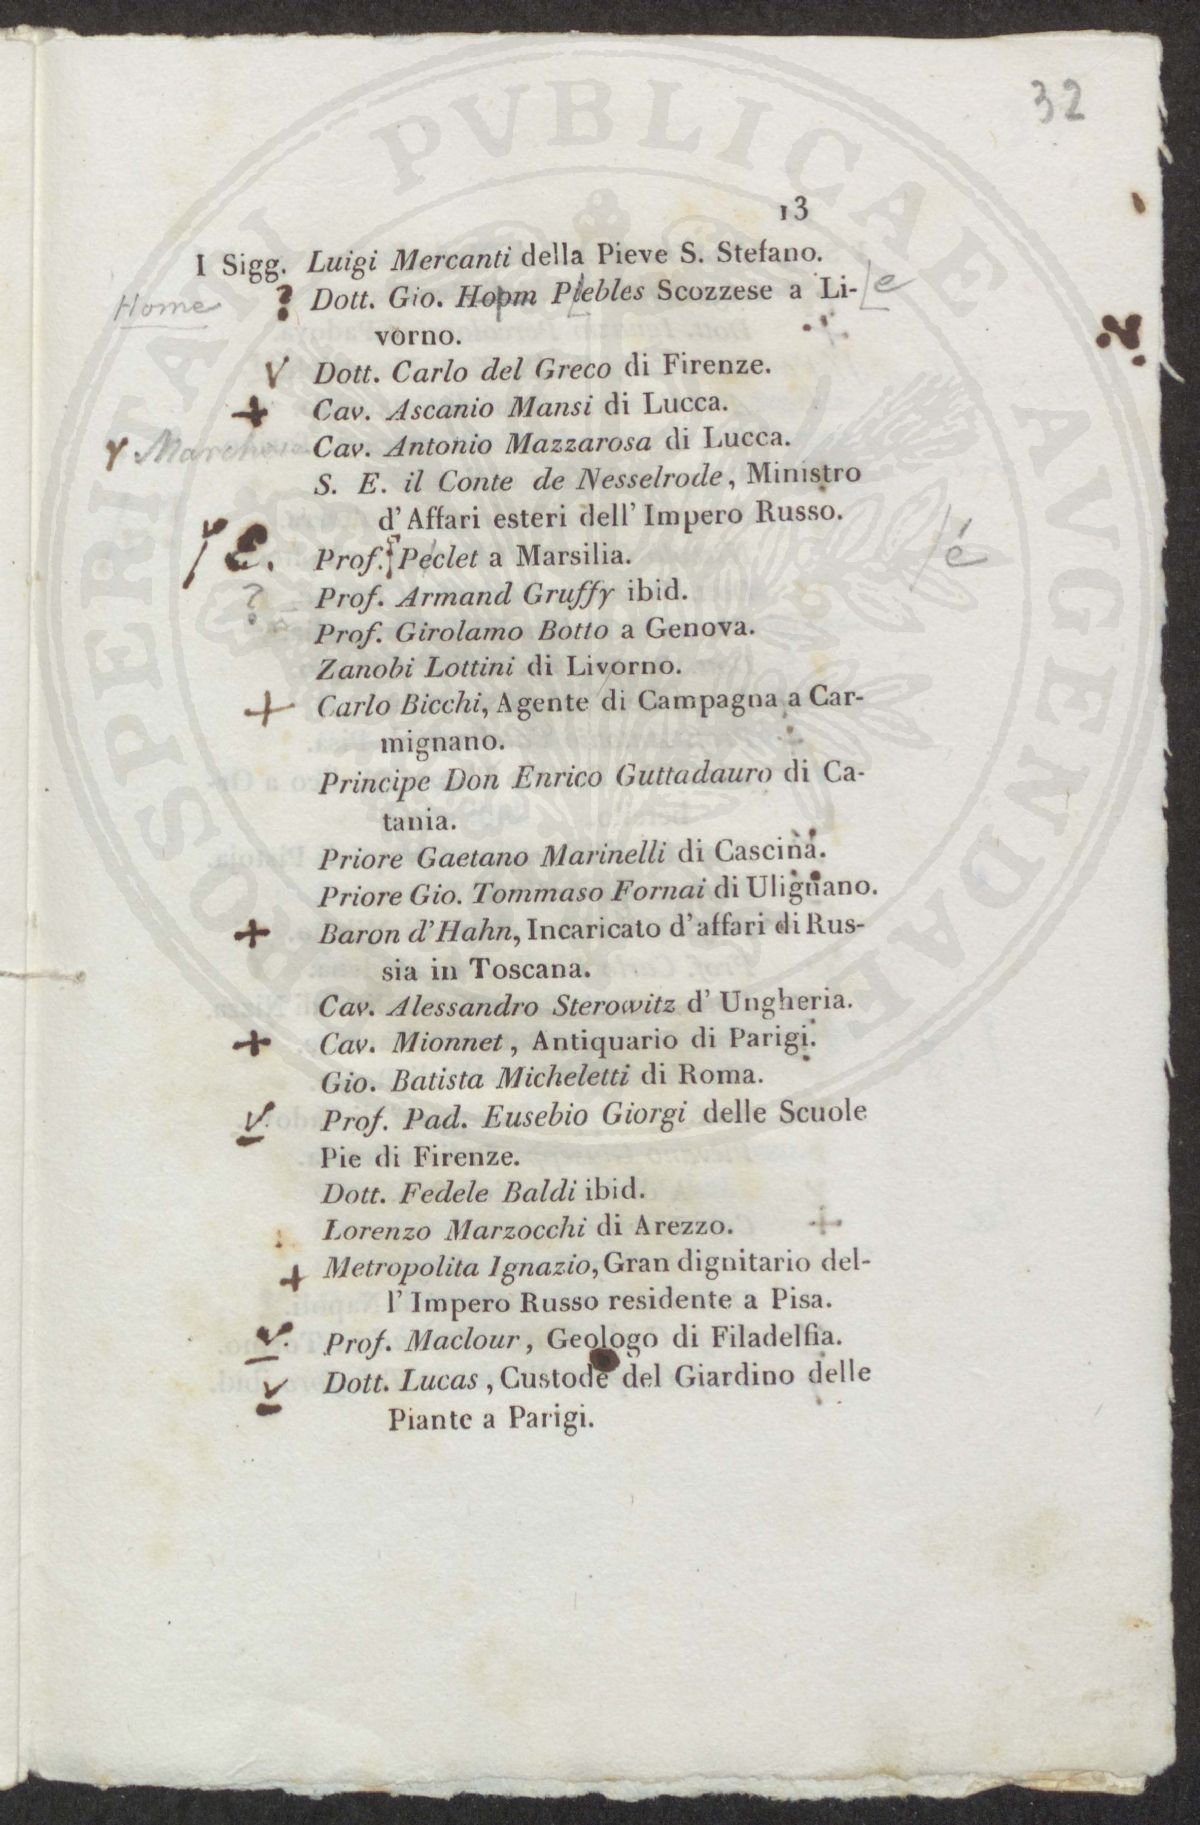 32
13
I Sigg. Luigi Mercanti della Pieve S. Stefano.
Home ? Dott. Gio. Hopm Plebles Scozzese a Li- e
vorno.
V Dott. Carlo del Greco di Firenze.
+ Cav. Ascanio Mansi di Lucca.
V Marchese Cav. Antonio Mazzarosa di Lucca.
S. E. il Conte de Nesselrode, Ministro
d'Affari esteri dell' Impero Russo.
E. Prof. Péclet a Marsilia. é
? Prof. Armand Gruffy ibid.
Prof. Girolamo Botto a Genova.
Zanobi Lottini di Livorno.
+ Carlo Bicchi, Agente di Campagna a Car-
mignano.
Principe Don Enrico Guttadauro di Ca-
tania.
Priore Gaetano Marinelli di Cascina.
Priore Gio. Tommaso Fornai di Ulignano.
+ Baron d'Hahn, Incaricato d'affari di Rus-
sia in Toscana.
Cav. Alessandro Sterowitz d' Ungheria.
+ Cav. Mionnet, Antiquario di Parigi.
Gio. Batista Micheletti di Roma.
V. Prof. Pad. Eusebio Giorgi delle Scuole
Pie di Firenze.
Dott. Fedele Baldi ibid.
Lorenzo Marzocchi di Arezzo. +
+ Metropolita Ignazio, Gran dignitario del-
l' Impero Russo residente a Pisa.
V. Prof. Maclour, Geologo di Filadelfia.
V Dott. Lucas, Custode del Giardino delle
Piante a Parigi.
PROSPERITATI PVBLICAE AVGENDAE